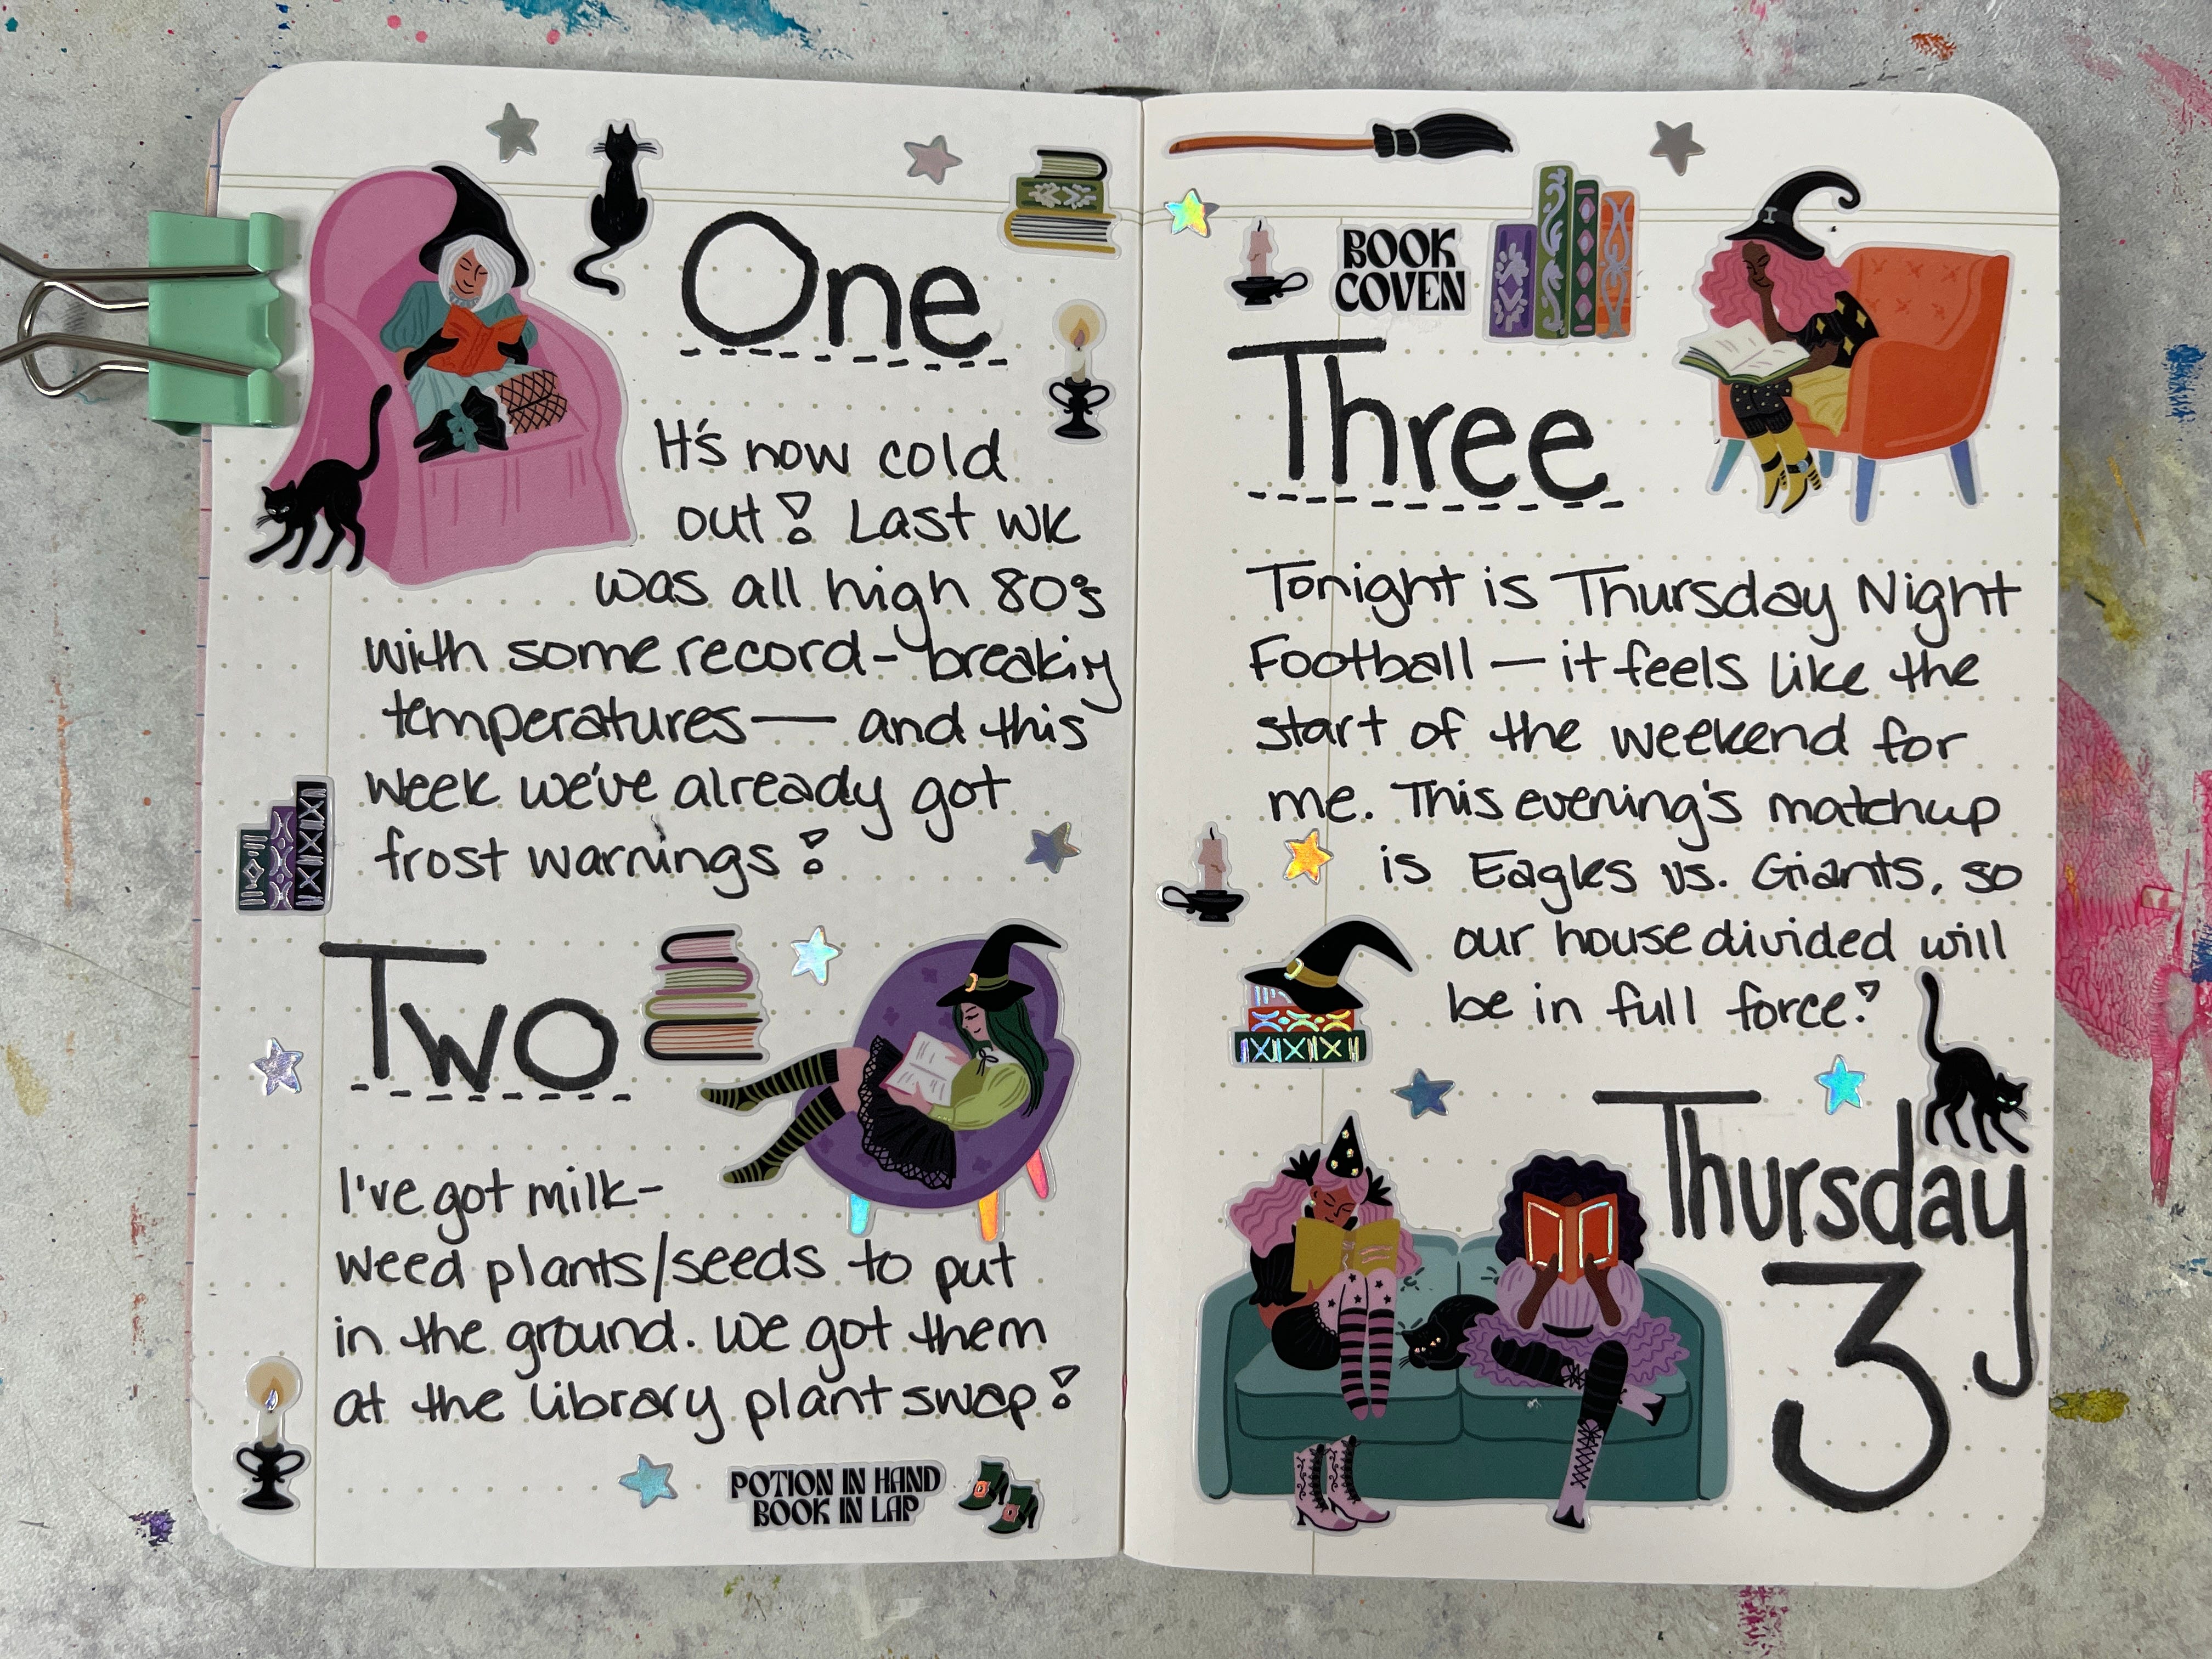 One
It's now cold
out! Last wk
was all high 80's
with some record-breaking
temperatures — and this
week we've already got
frost warnings!
Two
I've got milk-
weed plants/seeds to put
in the ground. We got them
at the library plant swap!
POTION IN HAND
BOOK IN LAP
BOOK
COVEN
Three
Tonight is Thursday Night
Football — it feels like the
start of the weekend for
me. This evening's matchup
is Eagles vs. Giants, so
our house divided will
be in full force!
Thursday
3